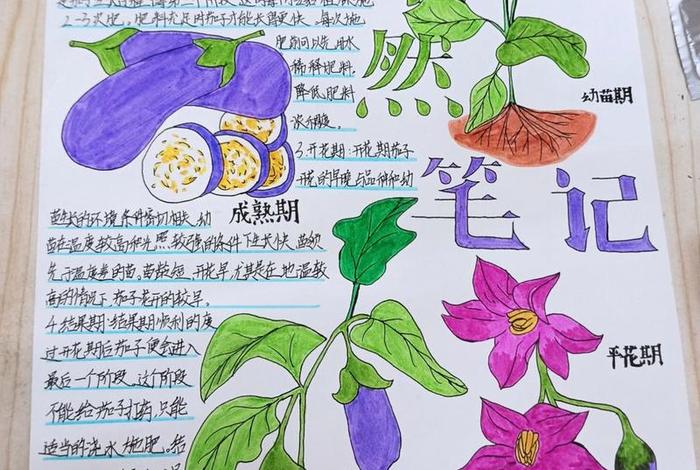 2-3次肥，肥料充足时茄子才能长得更快，每次施
肥前可以先用水
稀释肥料，
降低肥料
浓度。
3.开花期：开花期茄子
开花的早晚与品种和幼
苗生长的环境条件密切相关，幼
苗在温度较高和光照较强的条件下生长快，苗
短，开花早，尤其是在地温较
高的情况下，茄子花开的较早。
4.结果期：结果期顺利的度
过开花期后茄子便会进入
最后一个阶段，这个阶段
不能给茄子打药，只能
适当的浇水施肥。结
成熟期
然
笔记
幼苗期
开花期